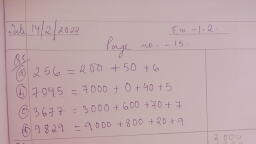 Date 14/2/2022
Ex-1.2
Page no. -15.
Q5
(a) 256 = 200 + 50 + 6
(b) 7045 = 7000 + 0 + 40 + 5
(c) 3677 = 3000 + 600 + 70 + 7
(d) 9829 = 9000 + 800 + 20 + 9